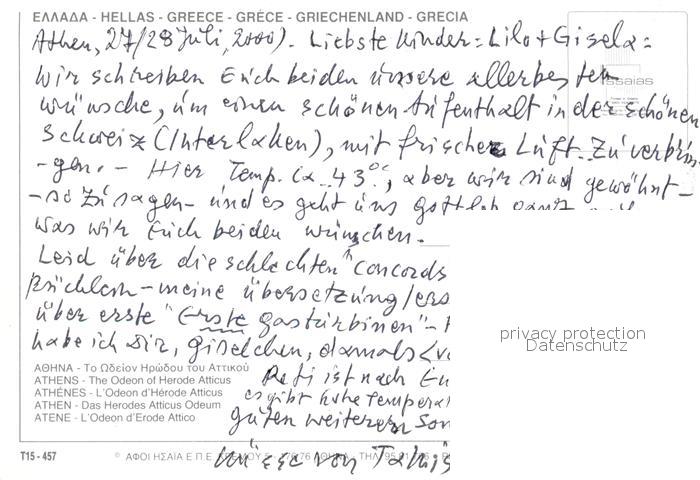 ΕΛΛΑΔΑ - HELLAS - GREECE - GRÈCE - GRIECHENLAND - GRECIA
Athen, 27/28 Juli, 2000). Liebste Kinder: Lilo + Gisela:
Wir schreiben Euch beiden unsere allerbesten
wünsche, um einen schönen Aufenthalt in der schönen
Schweiz (Interlaken), mit frischer Luft. Zu verbrin
-gen. - Hier Temp. ca. 43°C, aber wir sind gewöhnt -
- so zu sagen - und es geht uns gottlob
was wir Euch beiden wünschen.
Leid über die schlechten "Concords
- meine übersetzung
über erste "Erste gasturbinen" -
habe ich Dir, Giselchen, damals
ist nach
es gibt hohe Tempera
guten weiteren Som
von
isaias
ΑΘΗΝΑ - Το Ωδείον Ηρώδου του Αττικού
ATHENS - The Odeon of Herode Atticus
ATHÉNES - L'Odeon d'Hérode Atticus
ATHEN - Das Herodes Atticus Odeum
ATENE - L'Odeon d'Erode Attico
T15 - 457
© ΑΦΟΙ ΗΣΑΪΑ Ε.Π.Ε.
privacy protection
Datenschutz